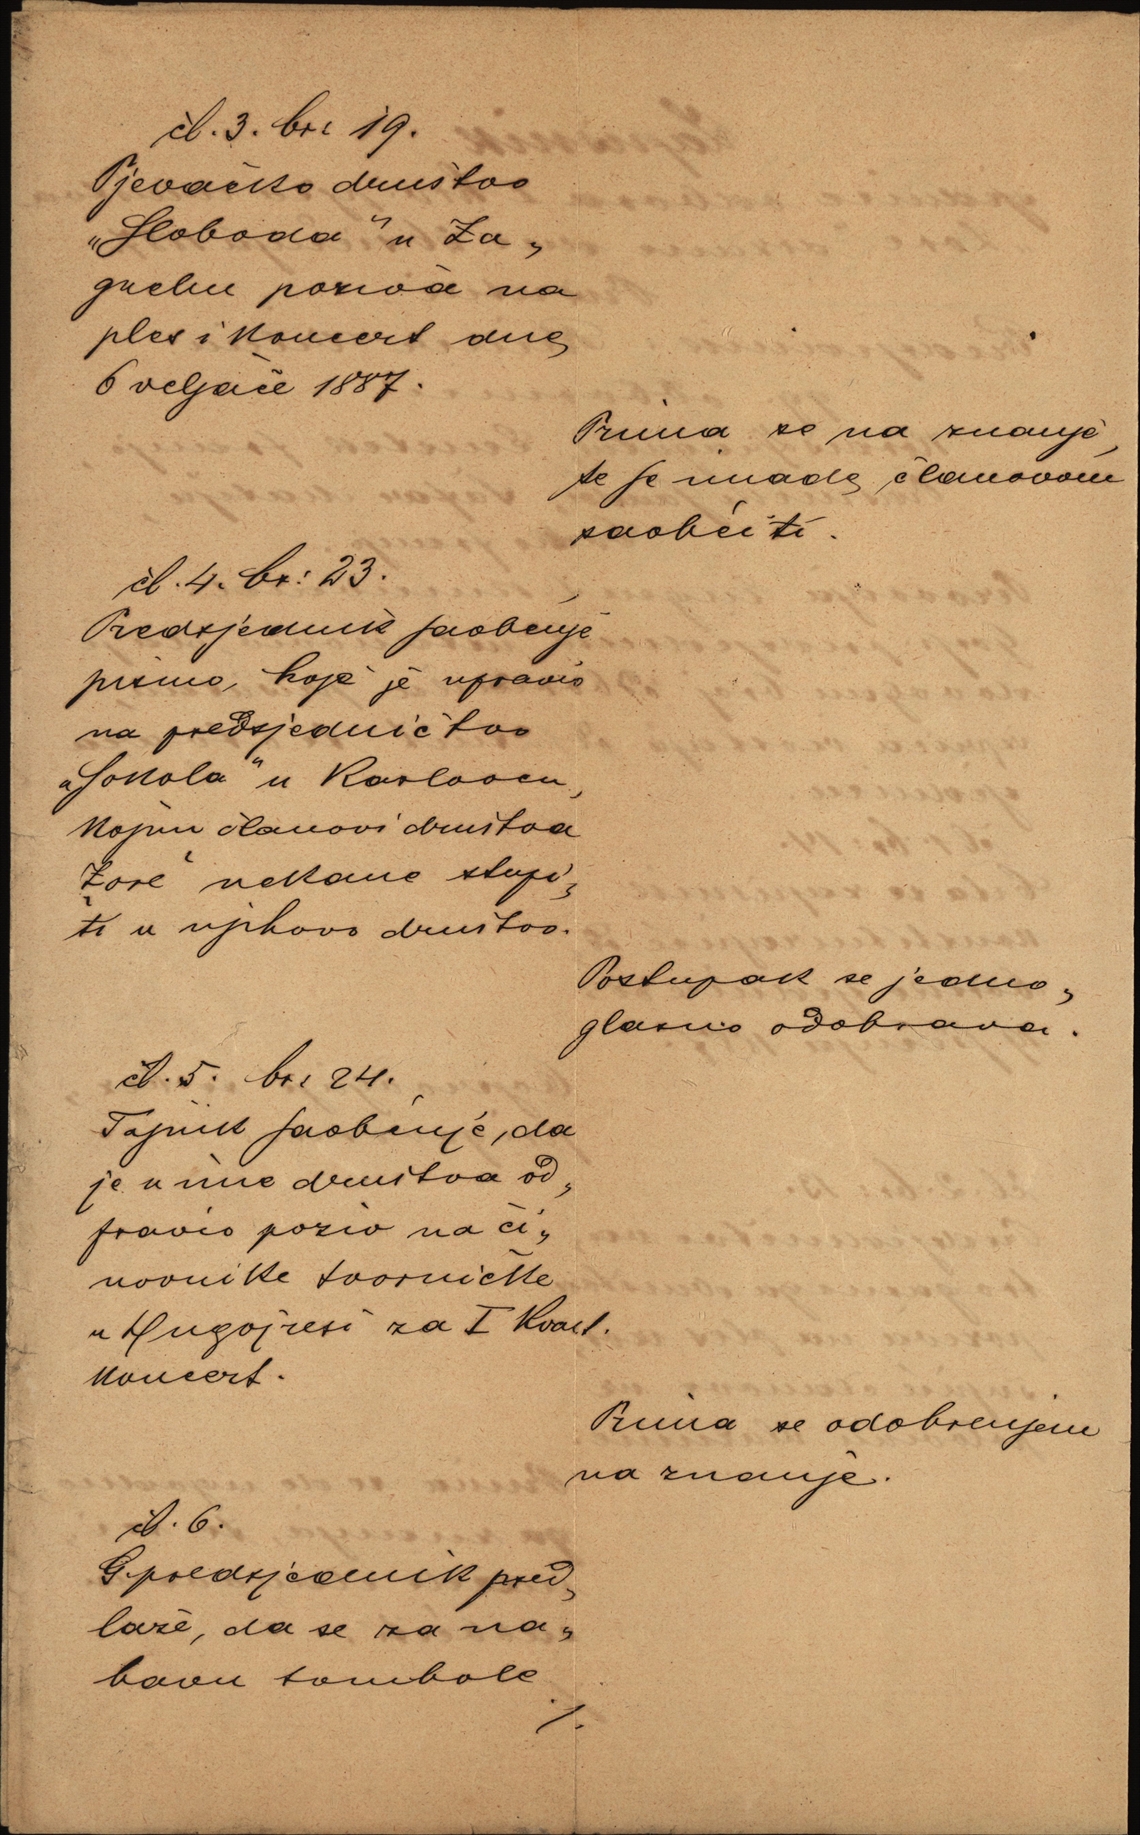 čl. 3. br: 19.
Pjevačko društvo
„Sloboda“ u Za„
grebu poziva na
ples i koncert dne
6 veljače 1887.
Prima se na znanje,
te se imade članovom
saobćiti.
čl. 4. br: 23.
Predsjednik saobćuje
pismo, koje je upravio
na predsjedničtvo
„Sokola“ u Karlovcu,
kojim članovi društva
Zore nekane stupi„
ti u njihovo društvo.
Postupak se jedno„
glasno odobrava.
čl. 5. br: 24.
Tajnik saobćuje, da
je u ime društva od„
pravio poziv na či„
novnike tvorničke
u Dugojresi za I kvart.
koncert.
Prima se odobrenjem
na znanje.
čl. 6.
G. predsjednik pred„
laže, da se za na„
bavu tombole
./.